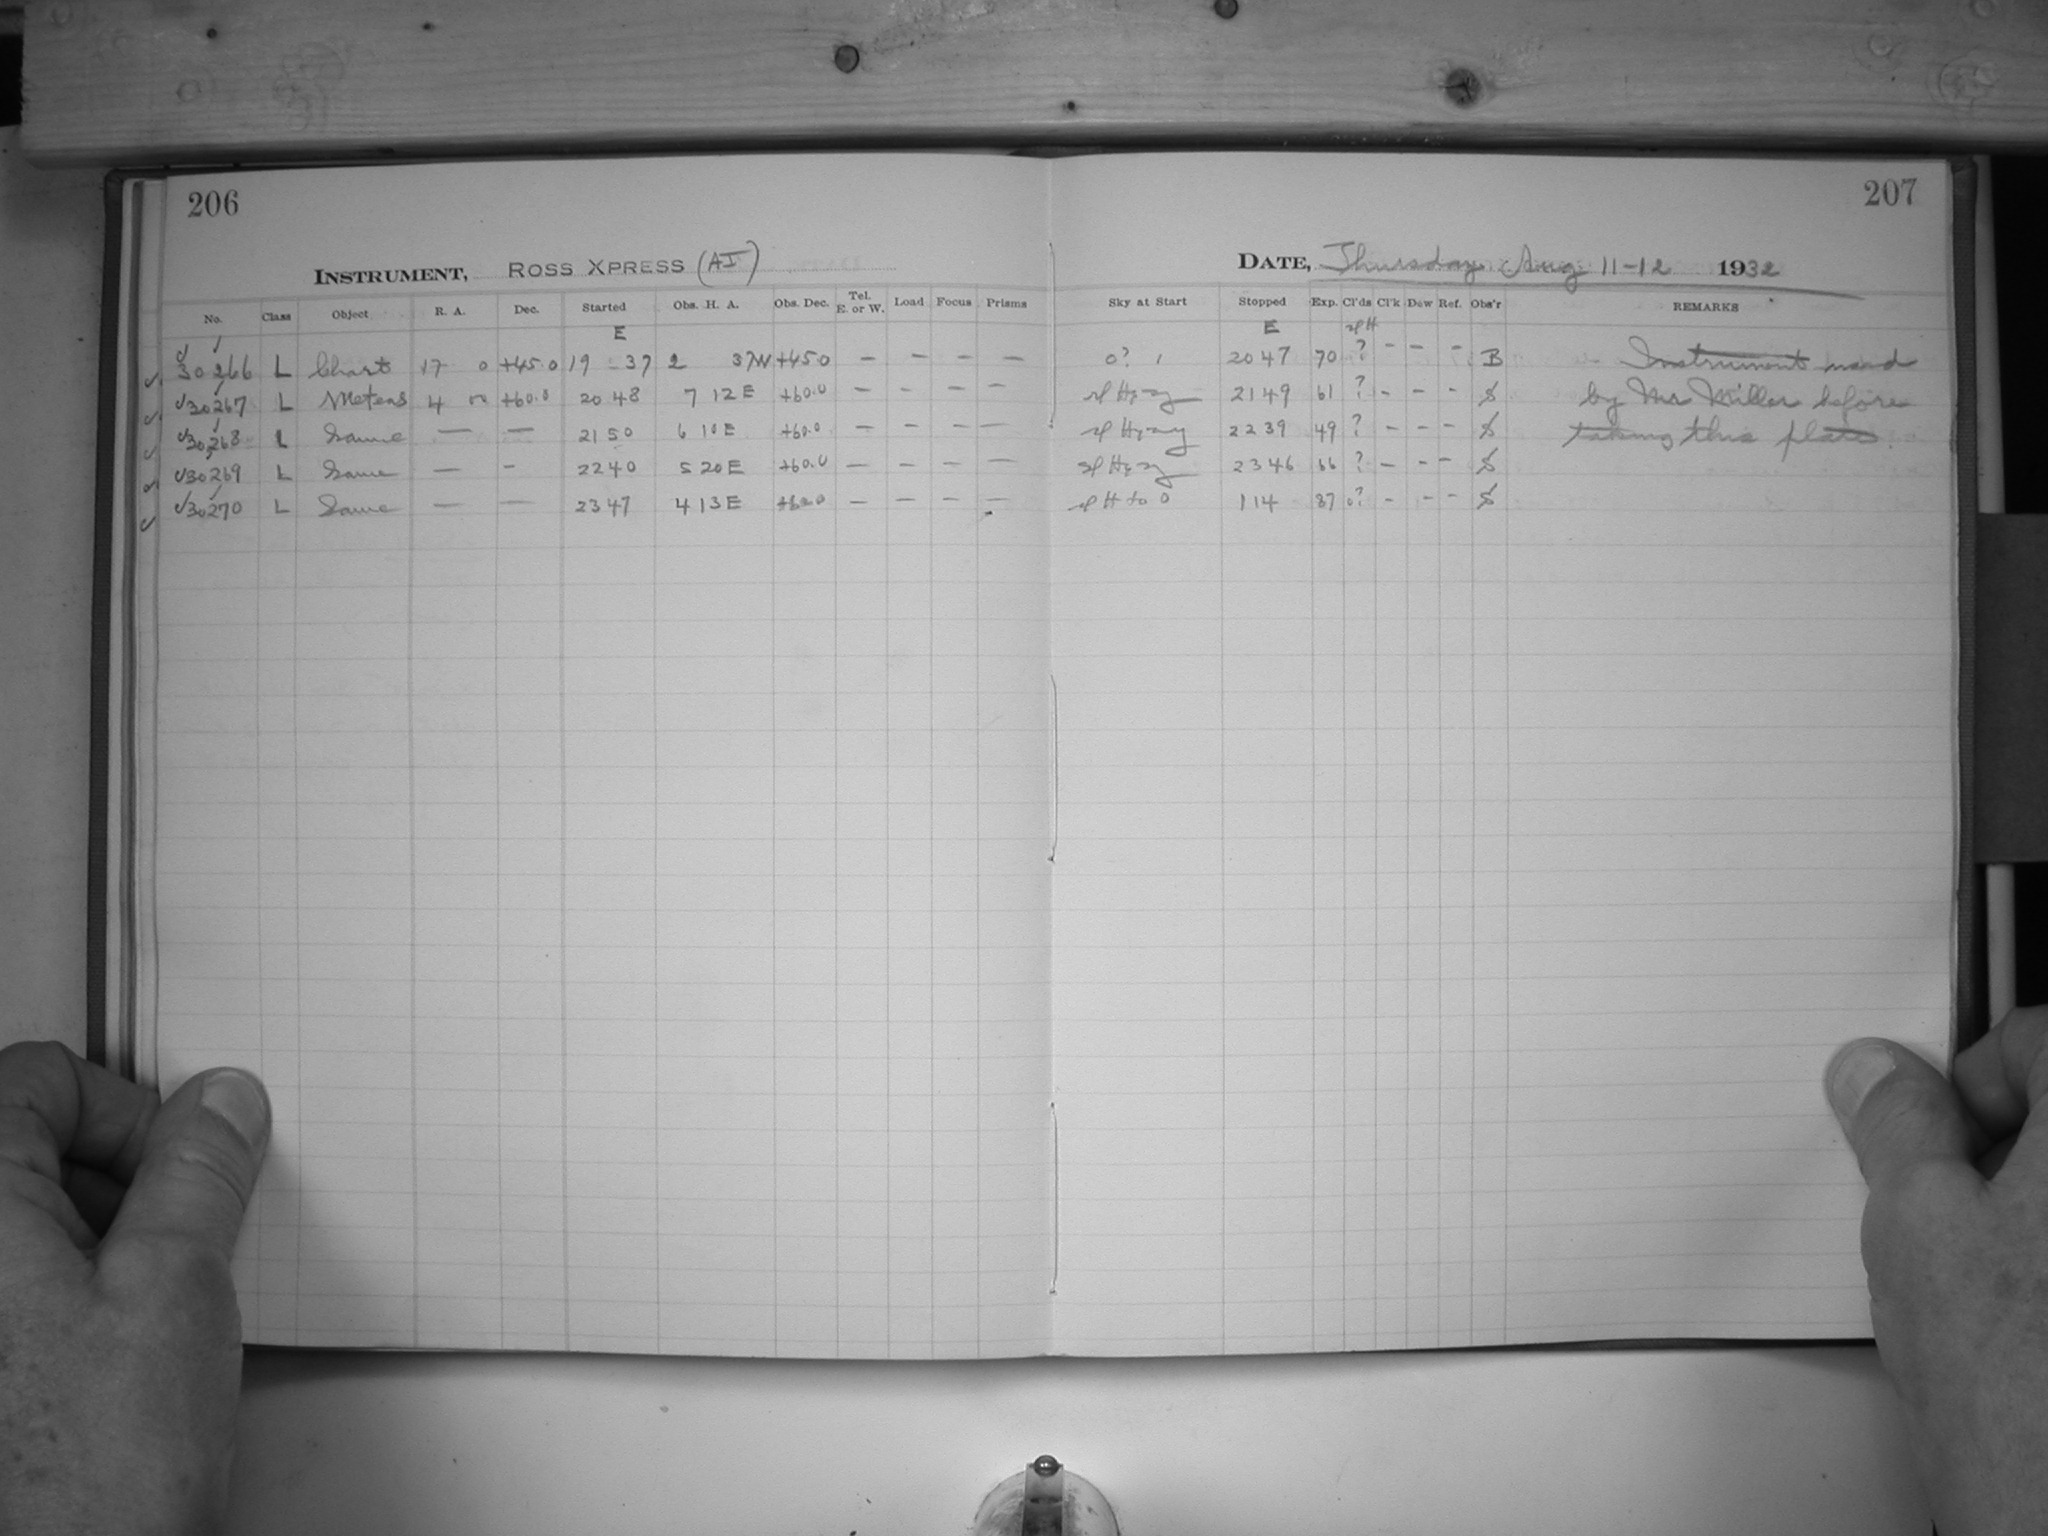 206
207
INSTRUMENT, ROSS XPRESS (AI)
DATE, Thursday Aug 11-12 1932
No. Class Object R. A. Dec. Started Obs. H. A. Obs. Dec. Tel. E. or W. Load Focus Prisms Sky at Start Stopped Exp. Cl'ds Cl'k Dew Ref. Obs'r REMARKS
E E sl H
30266 L Chart 17 0 +45.0 19 37 2 37W +45.0 — — — — 0? 2047 70 ? – – – B Instrument used
30267 L Meteors 4 00 +60.0 2048 7 12 E +60.0 — — — — sl Hazy 2149 61 ? – – – S by Mr Miller before
30268 L Same — — 2150 6 10 E +60.0 — — — — sl Hazy 2239 49 ? – – – S taking this plate.
30269 L Same — – 2240 5 20 E +60.0 — — — — sl Hazy 2346 66 ? – – – S
30270 L Same — — 2347 4 13 E +60.0 — — — — sl H to 0 114 87 0? – – – S